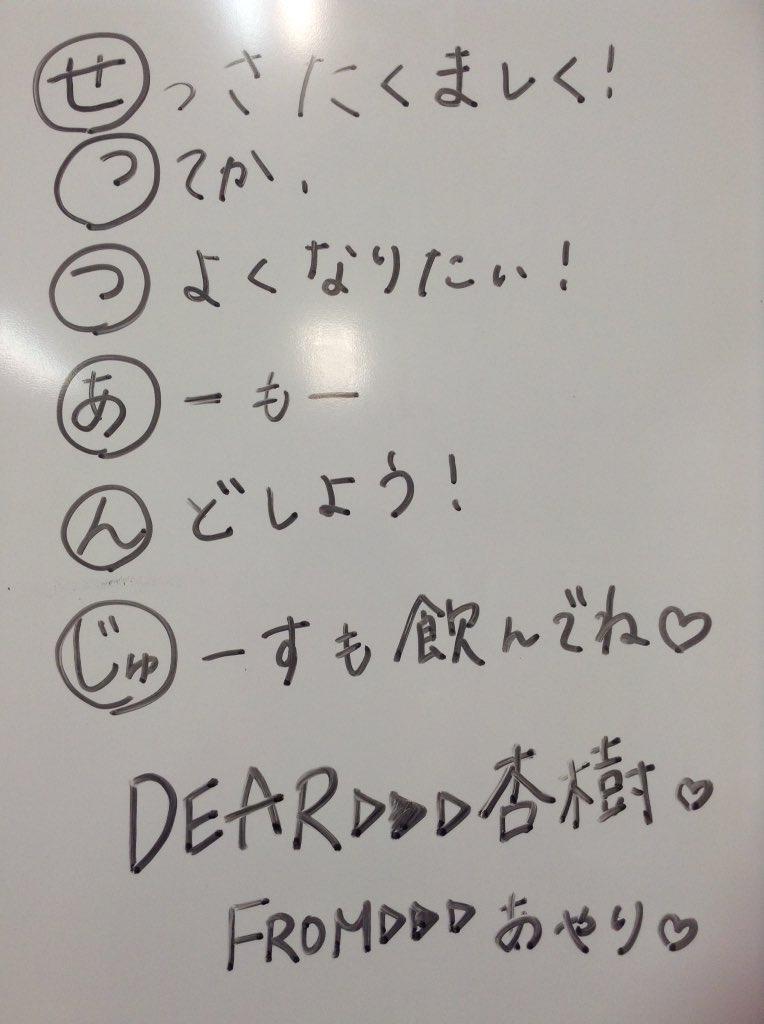 せっさたくましく!
ってか、
つよくなりたい!
あーもー
んどしよう!
じゅーすも飲んでね♡
DEAR▷▶▷杏樹♡
FROM▷▶▷あやり♡